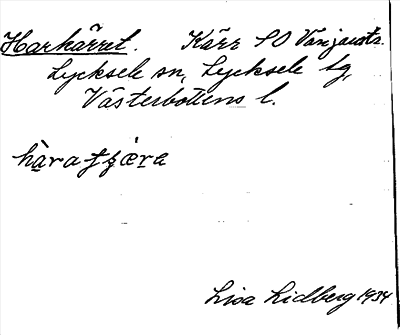 Harkärret. Kärr SO Vänjaurtr.
Lycksele sn, Lycksele tg,
Västerbottens l.
hàra fjæra
Lisa Lidberg 1934